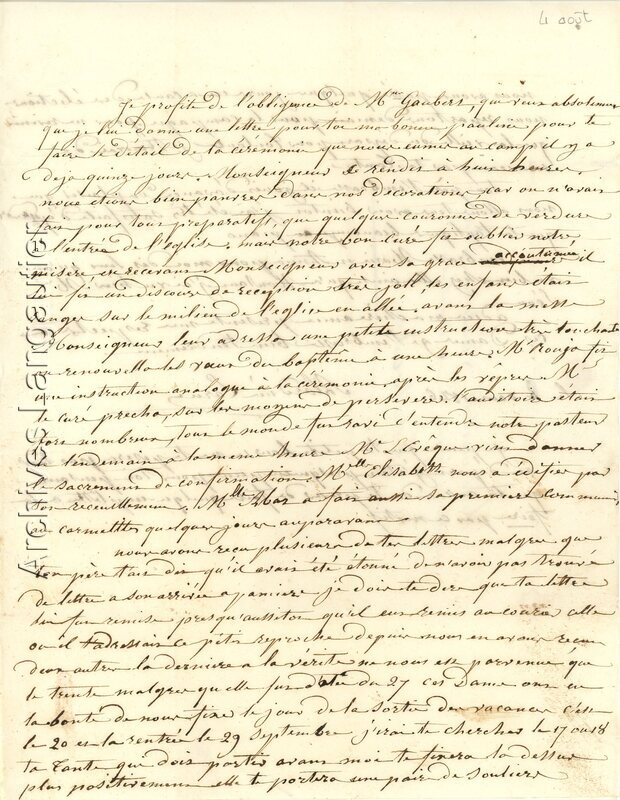 4 août
Je profite de l'obligence de Mme Gaubert, qui veux absolument
que je lui donne une lettre pour toi ma bonne pauline pour te
faire le détail de la cérémonie que nous eumes au camp il y a
deja quinze jours, Monseigneur se rendis à huit heures,
nous étions bien pauvres dans nos décorations, car on n'avais
fais pour tous preparatifs que quelque couronne de verdure
a l'entrée de l'église, mais notre bon curé fit oublier notre
misère en recevans Monseigneur avec sa grace accoutumée, il
lui fis un discours de reception tres joli les enfans étais
ranger sur le milieu de l'église en allée, avans la messe
Monseigneur leur adressa une petite instruction tres touchante
on renouvella les vœux du baptème a une heure, Mr Rouja fis
une instruction analogue à la cérémonie, après les vêpres Mr
le curé precha, sur les moyens de perseverer l'auditoire étais
fors nombreux, tous le monde fus ravi d'entendre notre pasteur
le lendemain a la meme heure Mr L'Evêque vins donner
le sacremens de confirmation, Mlle Elisabeth nous a édifier par
son receuillemens, Mlle Abar a fais aussi sa premiere communion
au carmelites quelques jours auparavans
nous avons reçu plusieurs de tes lettres malgrés que
ton père t'ais dis qu'il avais été étonné de n'avoir pas trouvé
de lettre a son arrivée a pamiers je dois te dire que ta lettre
lui fus remise presqu'aussitos qu'il eus remis au courié celle
ou il t'adressais ce petit reproche depuis nous en avons recu
deux autres la derniere a la verité ne nous est parvenue que
le trente malgres qu'elle fus daté du 27 ces Dames ons eu
la bonté de nous fixe le jour de la sortie des vacances c'est
le 20 et la rentrée le 29 septembre j'irai te chercher le 17 ou 18
ta tante que dois partir avans moi te fixera la dessus
plus positivemens elle te portera une paire de souliers
Archives Langautier